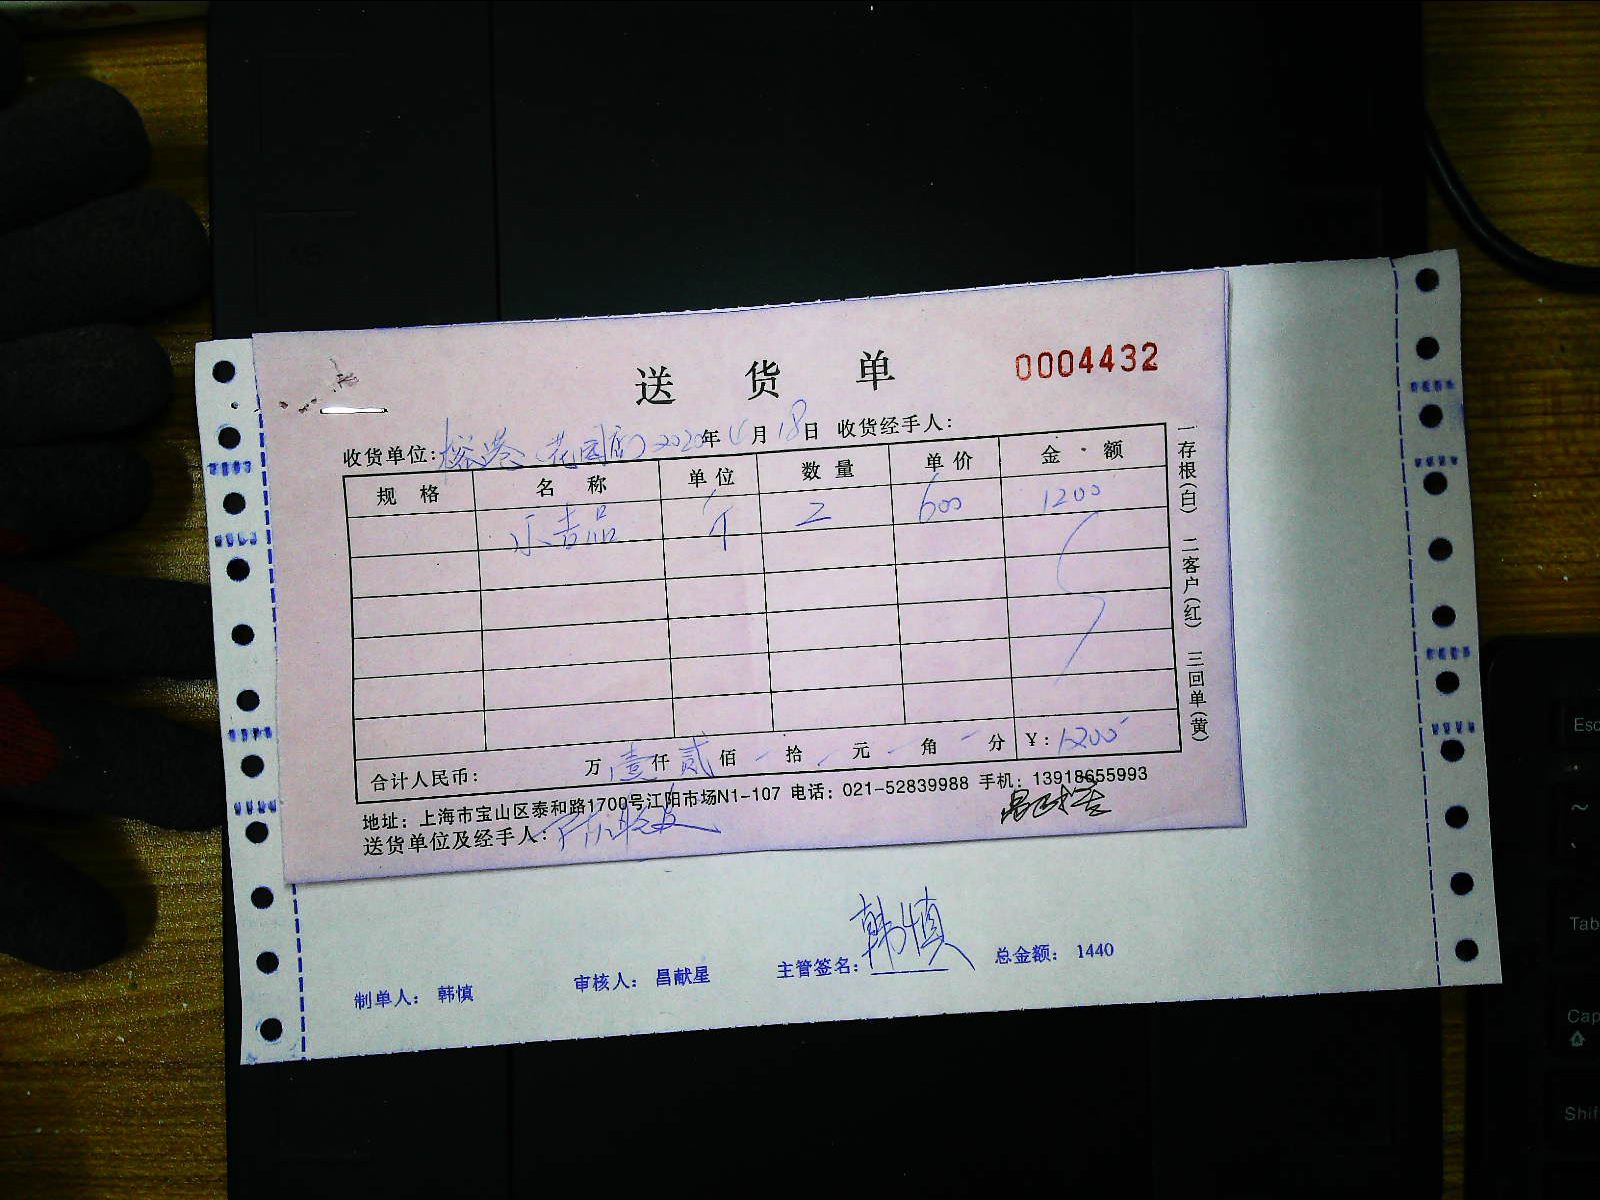 送 货 单 0004432
收货单位: (花园店) 2020年 月18日 收货经手人:
规 格 名 称 单 位 数 量 单 价 金 额
品 个 2 600 1200
合计人民币: 万壹仟贰佰 拾 元 角 分 ¥: 1200
地址: 上海市宝山区泰和路1700号江阳市场N1-107 电话: 021-52839988 手机: 13918655993
送货单位及经手人:
一存根(白) 二客户(红) 三回单(黄)
韩慎
制单人: 韩慎 审核人: 昌献星 主管签名: 总金额: 1440
Esc
~
Tab
Cap
Shif